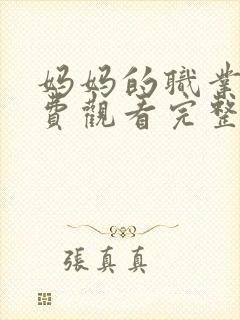 妈妈的職業
費觀看完整
張真真